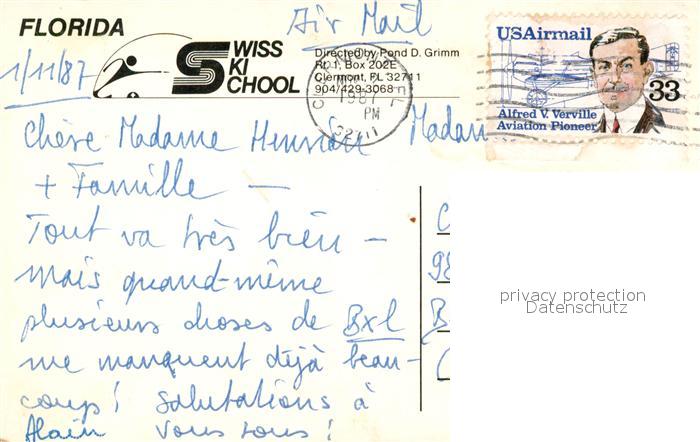 FLORIDA
Air Mail
1/11/87
SWISS
SKI
SCHOOL
Directed by Pond D. Grimm
Rt. 1, Box 202E
Clermont, FL 32711
904/429-3068
1987
PM
32711
USAirmail
33
Alfred V. Verville
Aviation Pioneer
Chère Madame Madam
+ Famille —
Tout va très bien —
mais quand-même
plusieurs choses de Bxl
me manquent déjà beau-
coup! Salutations à
Alain Vous tous!
privacy protection
Datenschutz